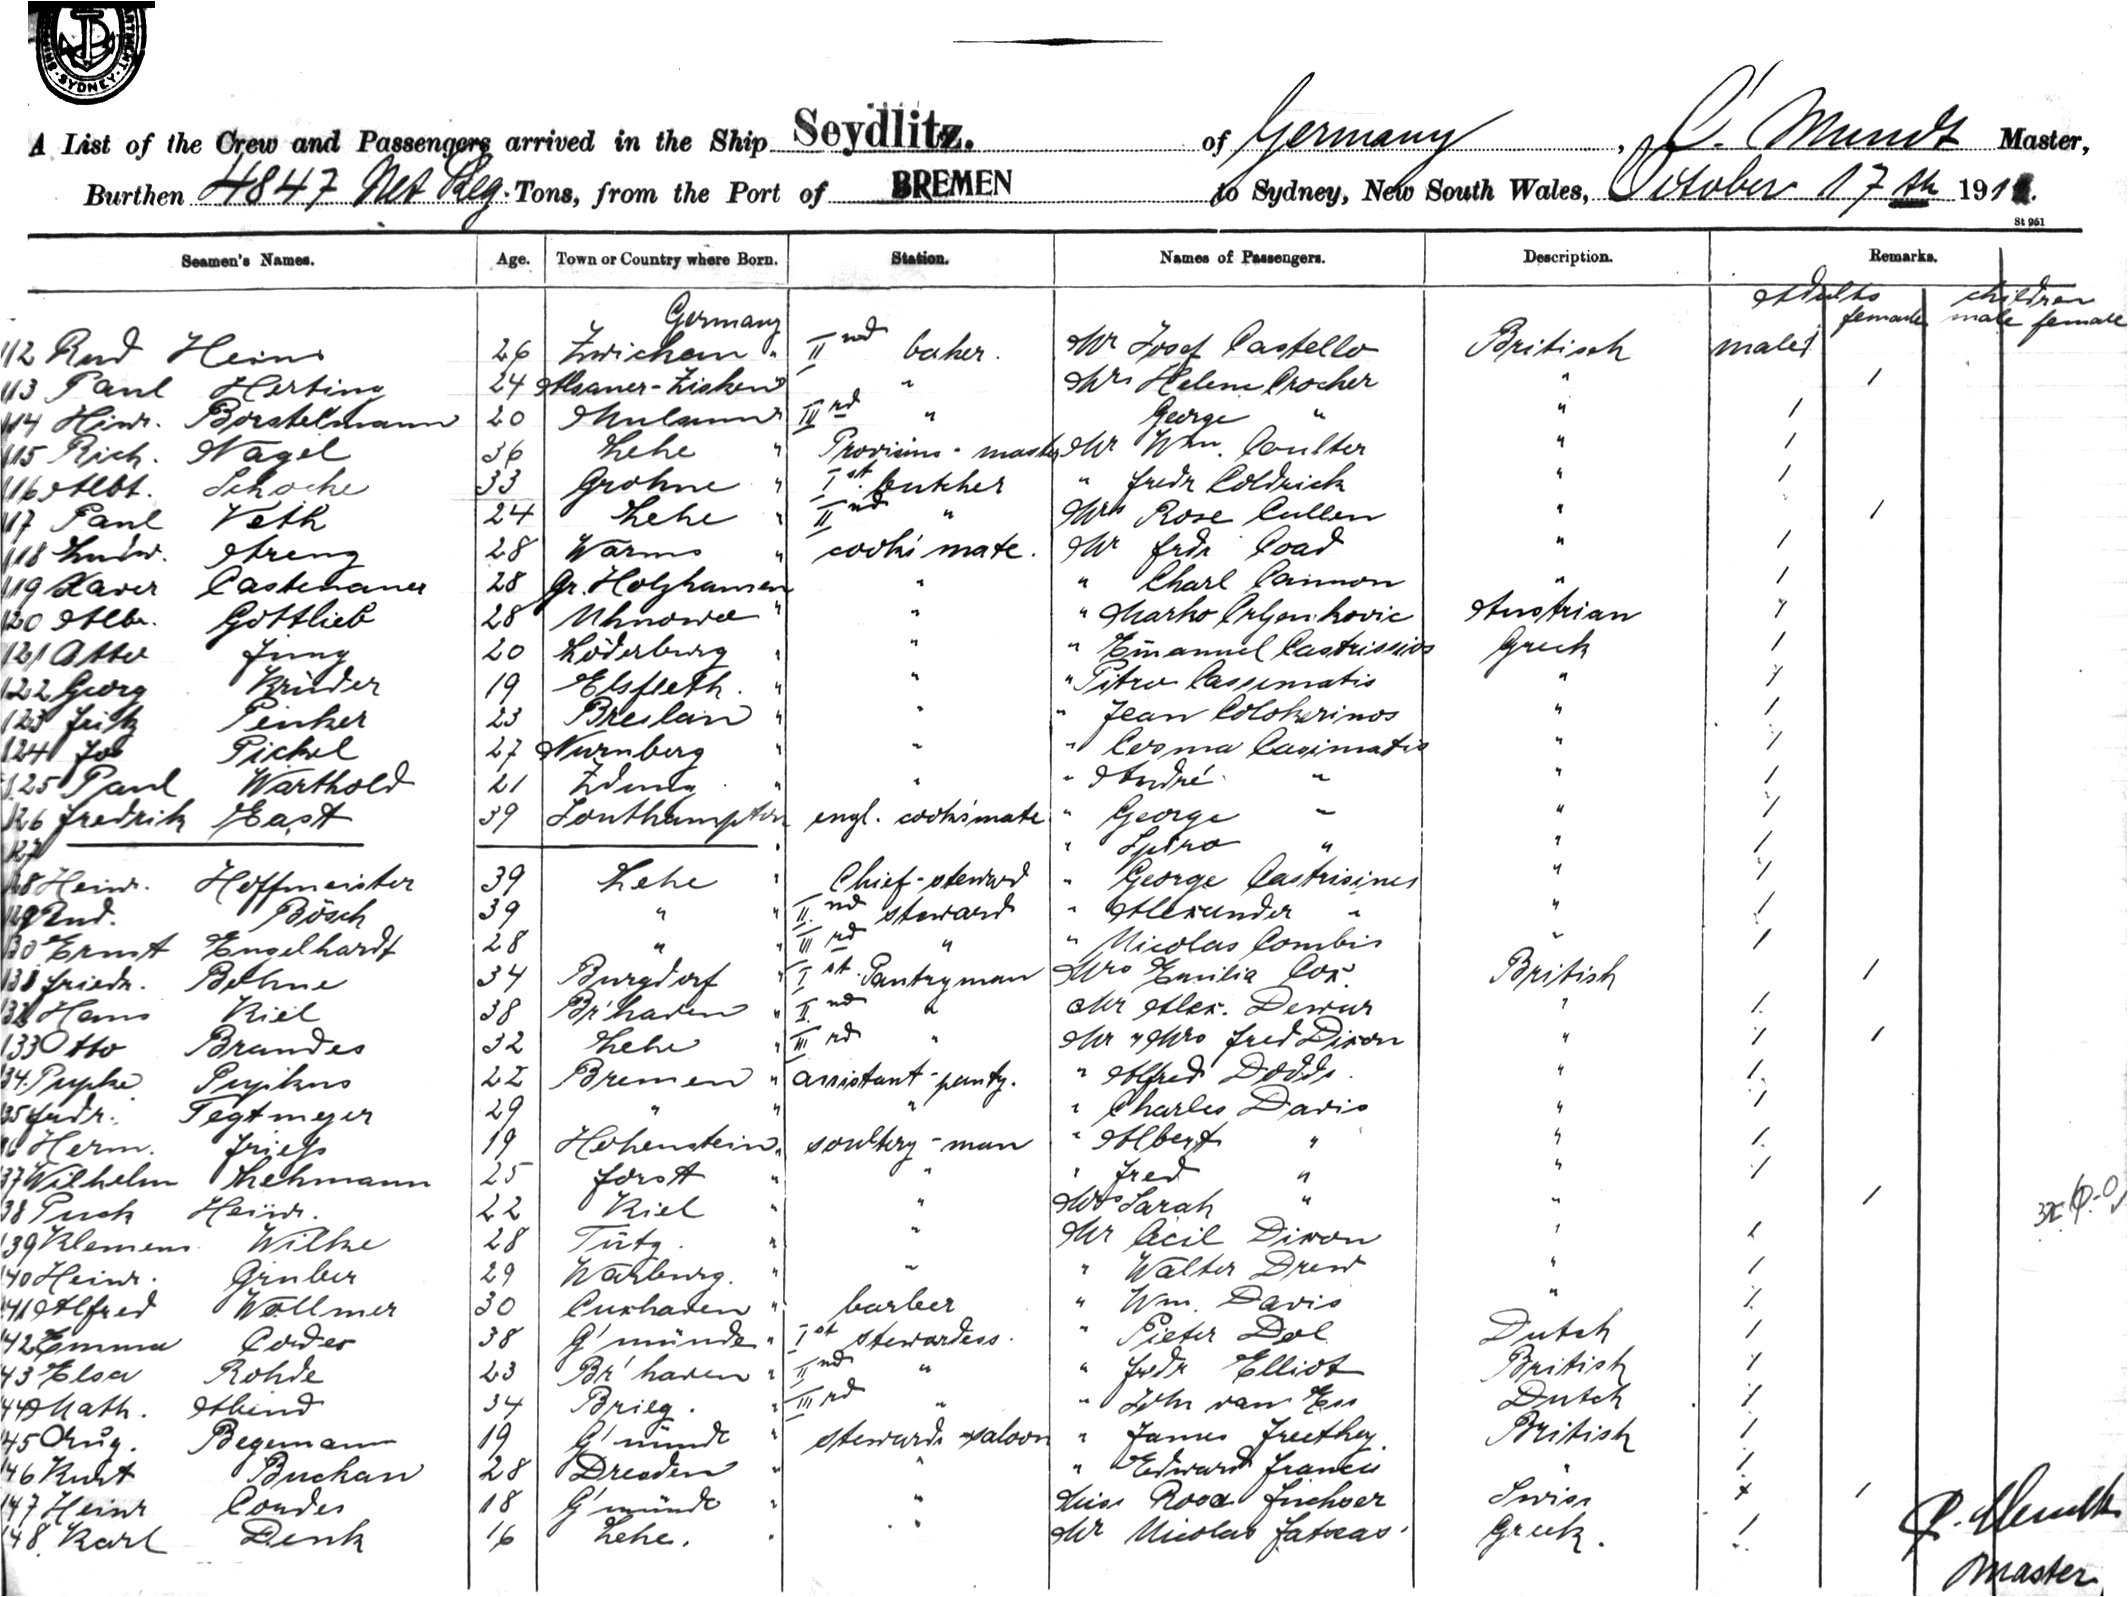 SYDNEY
A List of the Crew and Passengers arrived in the Ship Seydlitz. of Germany, C. Mundt Master,
Burthen 4847 Net Reg. Tons, from the Port of BREMEN to Sydney, New South Wales, October 17th 191
St 951
Seamen's Names. Age. Town or Country where Born. Station. Names of Passengers. Description. Remarks.
Adults children
Germany female male female
112 Rud Heins 26 Zwickau " IInd baker. Mr Josef Castello British males
113 Paul Herting 24 " Mrs Helene Crocher " 1
114 Hinr. Borstelmann 20 " IIIrd " George " " 1
115 Rich. Nagel 36 Lehe " Provisions-master Mr Wm. Coulter " 1
116 Albt. Schocke 33 Grohne " Ist butcher " Fredr Coldrick " 1
117 Paul Veth 24 Lehe " IInd " Mrs Rose Cullen " 1
118 Ludw. Streng 28 Worms " cook's mate. Mr Frdr Coad " 1
119 Xaver Castenauer 28 Gr. Holzhausen " " Charl Cannon " 1
120 Albr. Gottlieb 28 Uhnowa " " " Marko Austrian 1
121 Otto Jung 20 Löderburg " " " Emanuel Castrissios Greek 1
122 Georg Krüder 19 Elsfleth. " " " Pitro Cassimatis " 1
123 Fritz Penker 23 Breslau " " " Jean Colokerinos " 1
124 Jos Pickel 27 Nürnberg " " " Cosma Casimatis " 1
125 Paul Warthold 21 Zduny " " " André " " 1
126 Fredrik East 39 Southampton engl. cook's mate " George " " 1
127 " Spiro " " 1
128 Heinr. Hoffmeister 39 Lehe " Chief-steward " George Castrisines " 1
129 Rud. Bösch 39 " " IInd steward " Alexander " " 1
130 Ernst Engelhardt 28 " " IIIrd " " Nicolas Combis " 1
131 Friedr. Behne 34 Burgdorf " Ist Pantryman Mrs Emilia Cox. British 1
132 Hans Kiel 38 Br'haven " IInd " Mr Alex. Dewar " 1
133 Otto Brandes 32 Lehe " IIIrd " Mr " Mrs Fred Dixon " 1 1
134. Pupke 22 Bremen " assistant-pantry. " Alfred Dodds. " 1
135 Fredr. Tegtmeyer 29 " " " " Charles Davis " 1
136 Herm. Friess 19 Hohenstein " soullery-man " Albert " " 1
137 Wilhelm Lehmann 25 Forst " " " Fred " " 1
138 Puck Heinr. 22 Kiel " " Mrs Sarah " " 1
139 Klemens Wilke 28 Tütz. " " Mr Cecil Dixon " 1
140 Heinr. Gruber 29 Warburg. " " " Walter Drew " 1
141 Alfred Wollmer 30 Cuxhaven " barber " Wm. Davis " 1
142 Emma Cordes 38 G'münde " Ist stewardess. " Pieter Dol Dutch 1
143 Elsa Rohde 23 Br'haven " IInd " " Fredr Elliot British 1
144 Math. Abend 34 Brieg. " IIIrd " " John van Ess Dutch 1
145 Aug. Begemann 19 G'münde " stewards-saloon " James Freethey. British 1
146 Kurt Buchan 28 Dresden " " " Edward Francis " 1
147 Heinr Cordes 18 G'münde " " Miss Rosa Fuchser Swiss 1
148. Karl Denk 16 Lehe. " " Mr Nicolas Fatseas Greek. 1
C. Mundt
Master